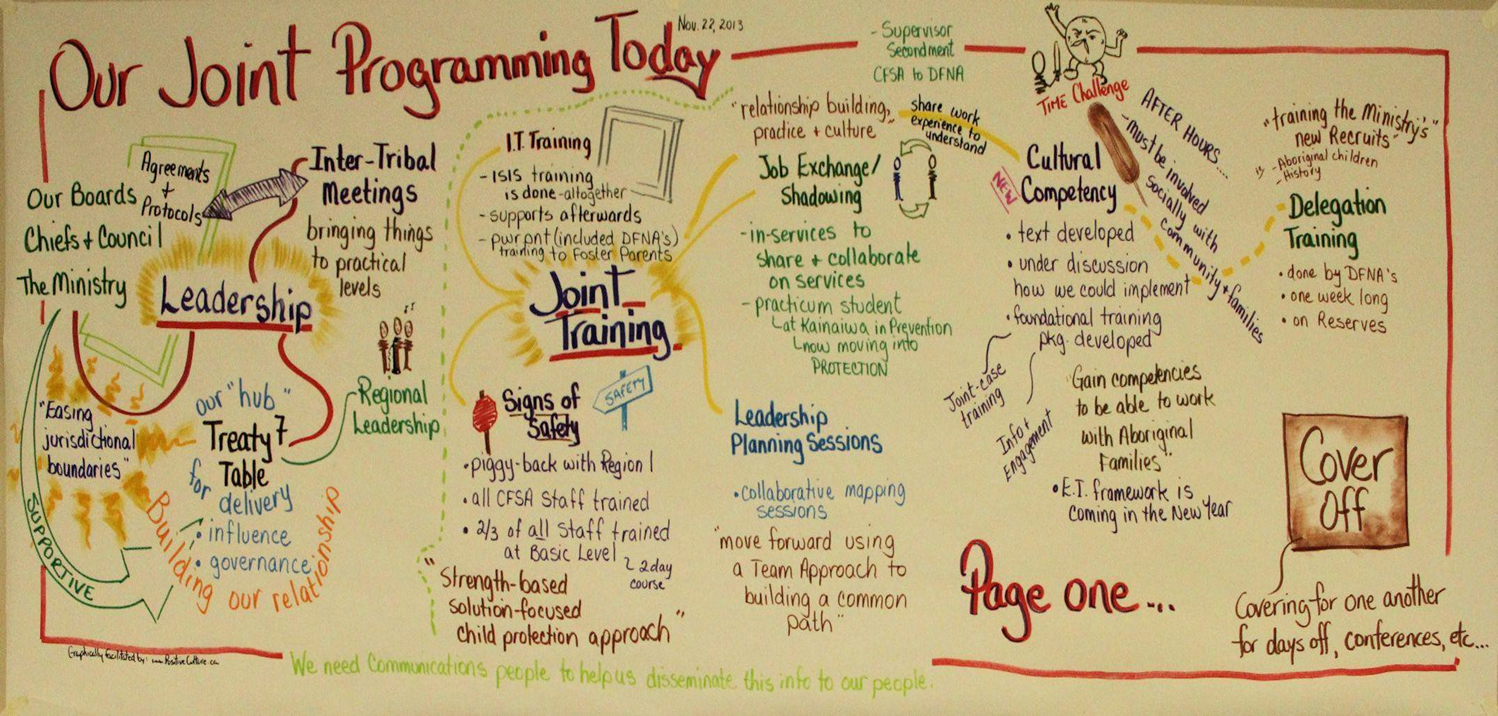 Our Joint Programming Today
Nov. 22, 2013
Our Boards
Chiefs + Council
The Ministry
Agreements
+
Protocols
Inter-Tribal
Meetings
bringing things
to practical
levels
Leadership
Regional
Leadership
"Easing
jurisdictional
boundaries"
SUPPORTIVE
our "hub"
Treaty 7
Table
for
delivery
• influence
• governance
Building our relationship
I.T. Training
- ISIS training
is done - altogether
- supports afterwards
- pwrpnt (included DFNA's)
training to Foster Parents
Joint
Training
Signs of
Safety
SAFETY
• piggy-back with Region 1
• all CFSA Staff trained
• 2/3 of all Staff trained
at Basic Level
2 day
course
"Strength-based
solution-focused
child protection approach"
- Supervisor
Secondment
CFSA to DFNA
"relationship building,
practice + culture"
share work
experience to
understand
Job Exchange/
Shadowing
- in-services to
share + collaborate
on services
- practicum student
at Kainaiwa in Prevention
now moving into
PROTECTION
Leadership
Planning Sessions
• collaborative mapping
sessions
"move forward using
a Team Approach to
building a common
path"
TIME Challenge
NEW
Cultural
Competency
• text developed
• under discussion
how we could implement
• foundational training
pkg. developed
Joint-case
training
Info +
Engagement
"Gain competencies
to be able to work
with Aboriginal
Families"
• E.I. framework is
coming in the New Year
AFTER HOURS....
- Must be involved
socially with
community + families
"training the Ministry's"
new Recruits"
- Aboriginal children
- History
Delegation
Training
• done by DFNA's
• one week long
• on Reserves
Cover
Off
Covering for one another
for days off, conferences, etc...
Page one...
Graphically facilitated by: www.PositiveCulture.ca
We need Communications people to help us disseminate this info to our people.